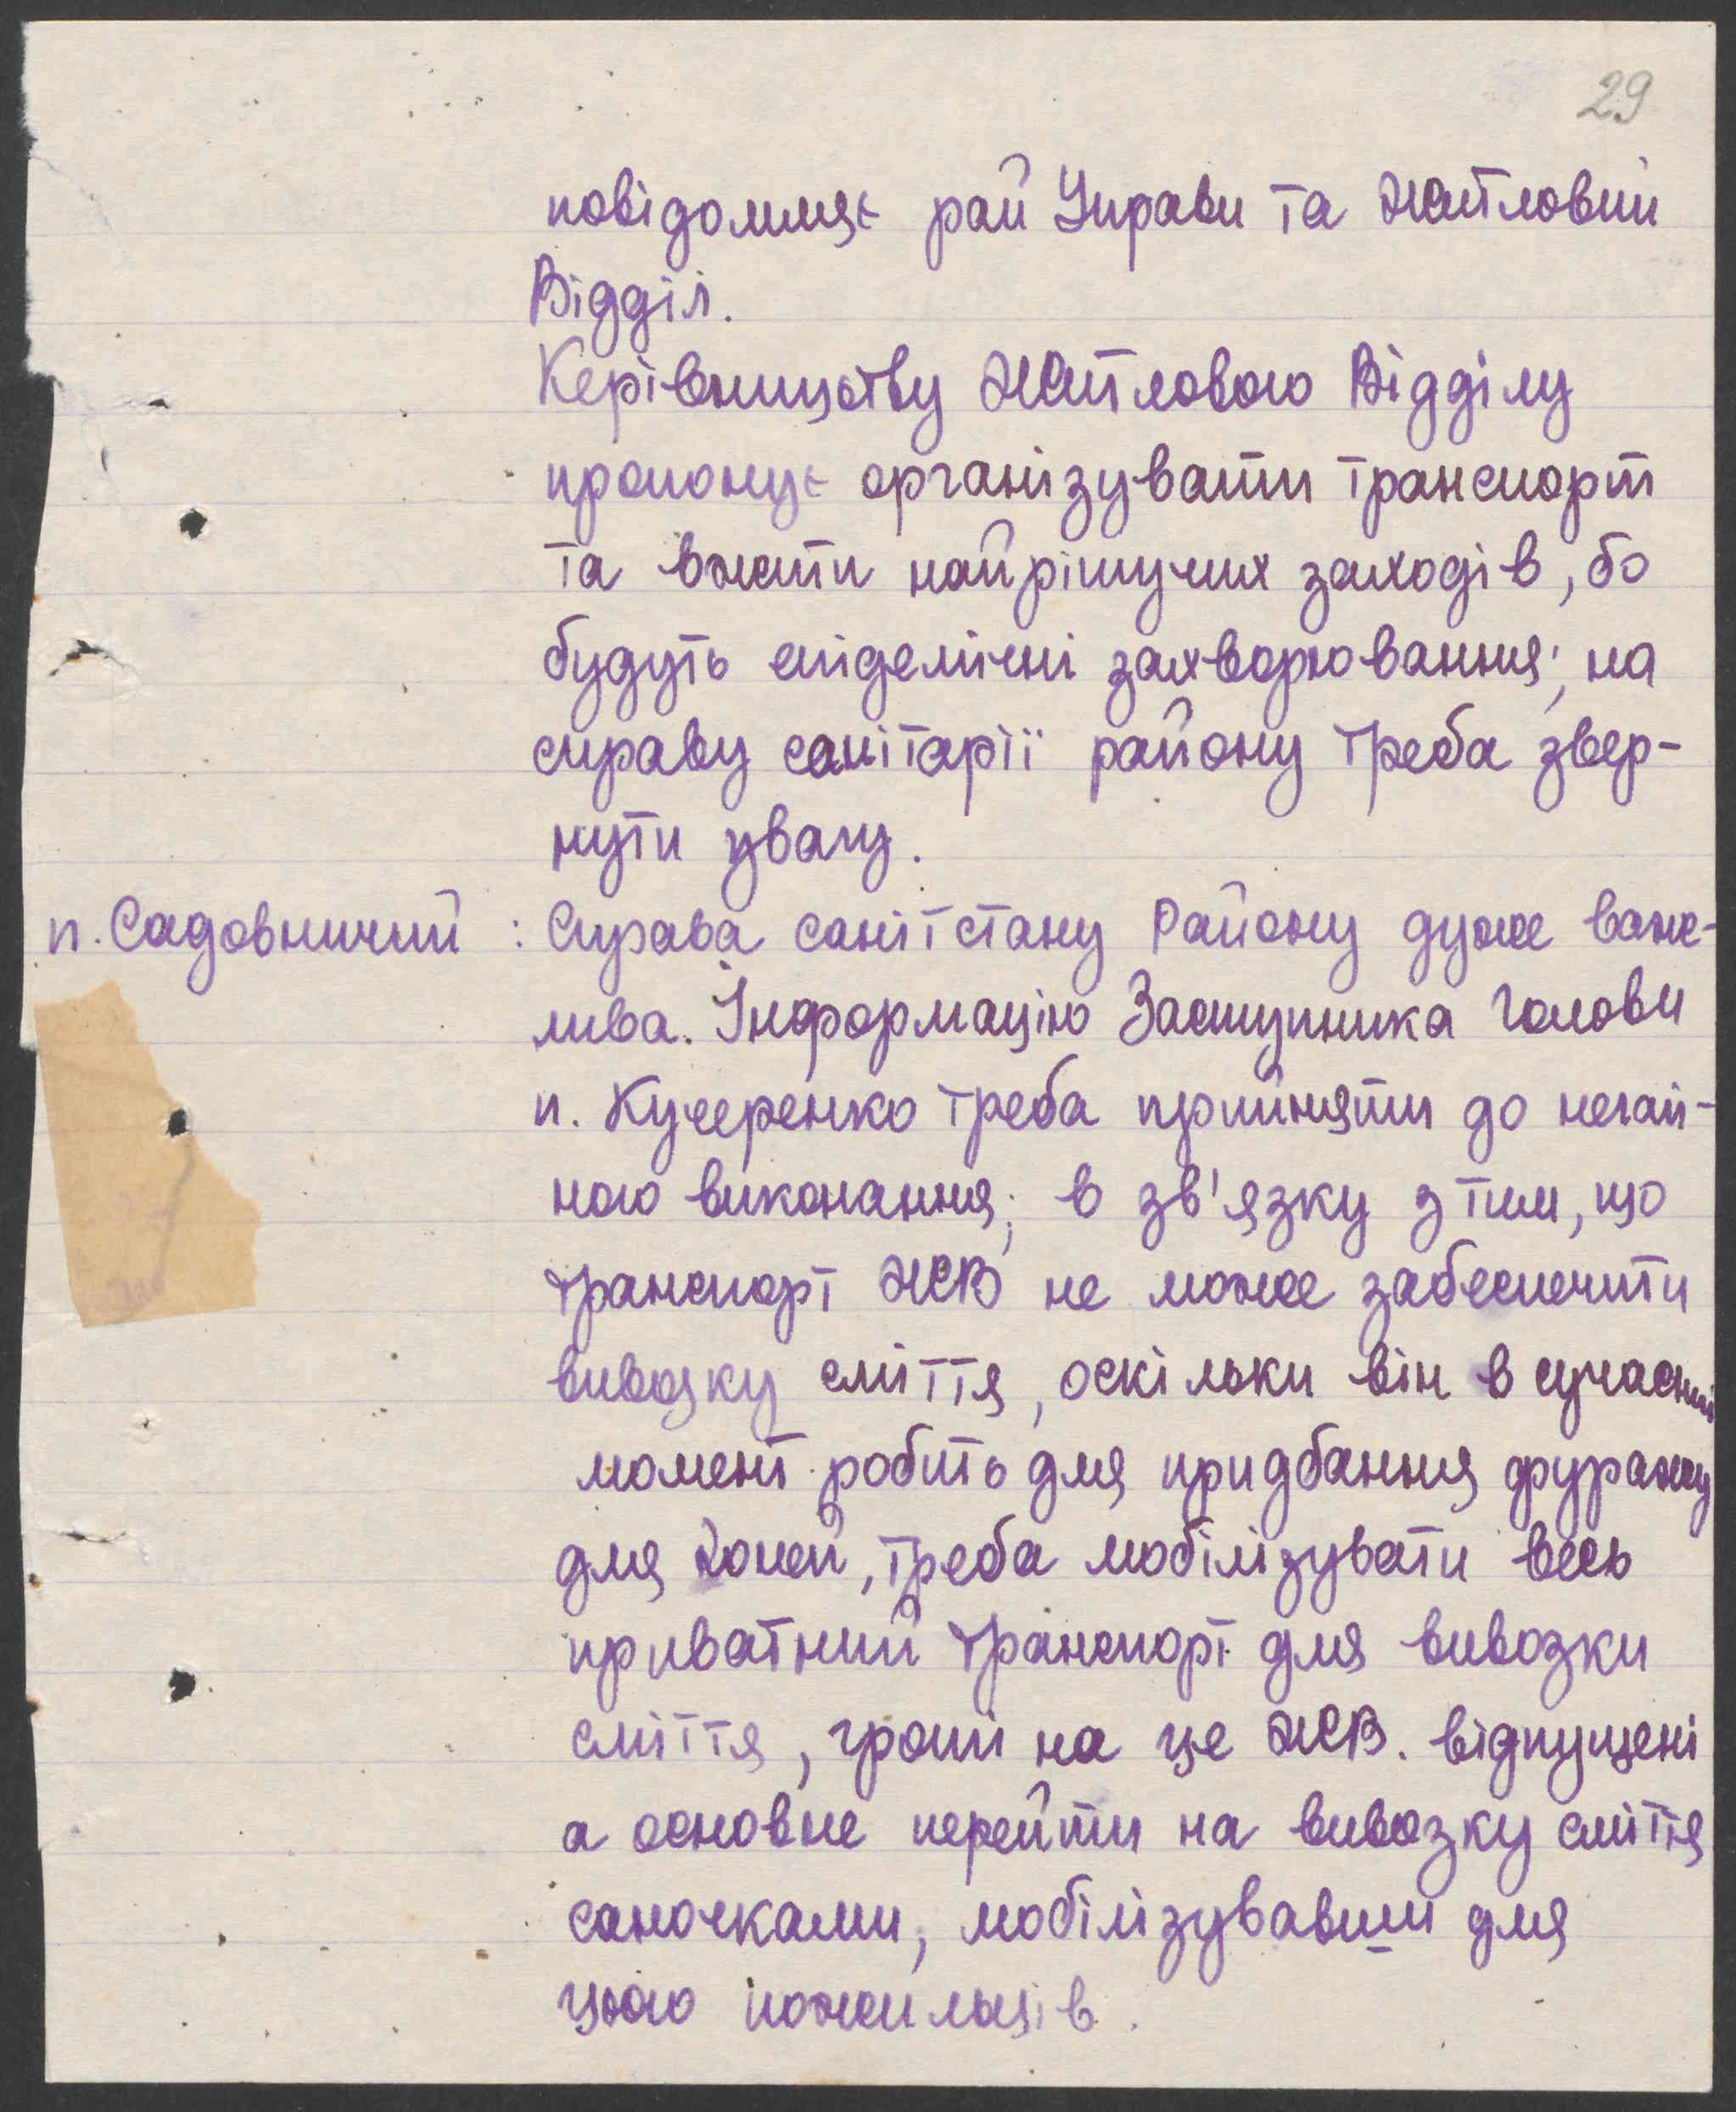 29
повідомляє рай Управи та Житловий
Відділ.
Керівництву Житлового Відділу
пропонує організувати транспорт
та вжити найрішучих заходів, бо
будуть епідемічні захворювання; на
справу санітарії району треба звер-
нути увагу.
п. Садовничий : Справа санітстану Району дуже важ-
лива. Інформацію Заступника Голови
п. Кучеренко треба прийняти до негай-
ного виконання; в зв'язку з тим, що
транспорт ЖВ не може забеспечити
вивозку сміття, оскільки він в сучасний
момент робить для придбання фуражу
для коней, треба мобілізувати весь
приватний транспорт для вивозки
сміття, гроші на це ЖВ. відпущені
а основне перейти на вивозку сміття
саночками, мобілізувавши для
цього пожильців.